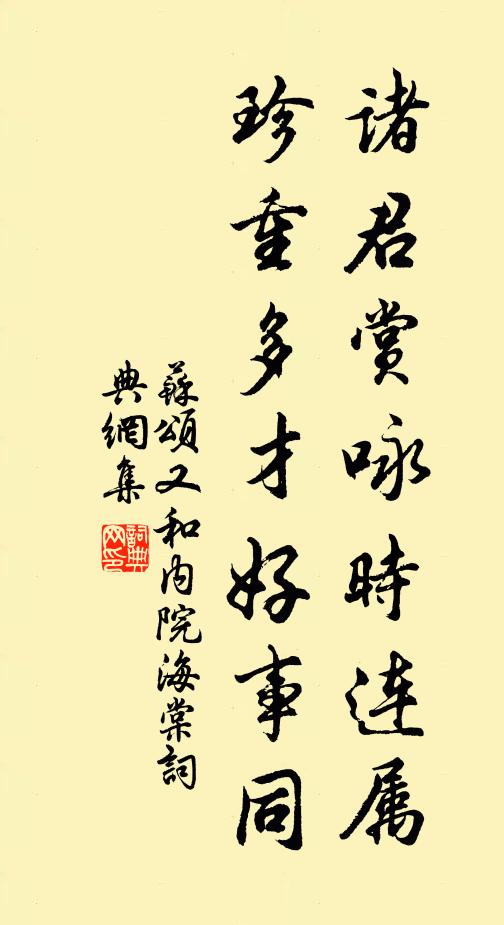 諸君賞咏時连属
珍重多才好事同
蘇頌又和内院海棠詞
典網集
詞典网印